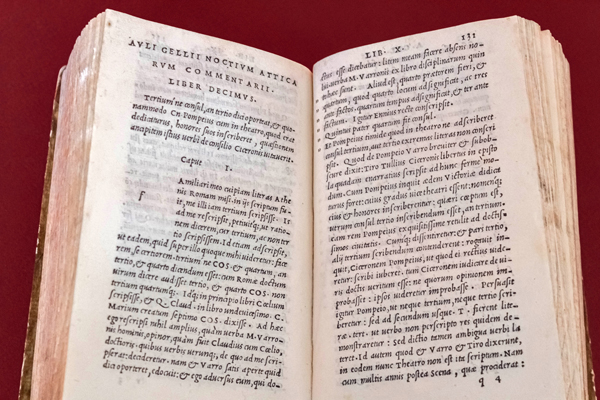 AVLI GELLII NOCTIVM ATTICA
RVM COMMENTARII.
LIBER DECIMVS.
Tertium ne consul, an tertio dici oporteat, & quo-
nammodo Cn. Pompeius cum in theatro, quod erat
dedicaturus, honores suos inscriberet, quæstionem
ancipitem istius verbi de consilio Ciceronis uitauerit.
Caput I.
f
Amiliari meo cuipiam literas Athe
nis Romam misi. in ijs scriptum fu-
it, me illi iam tertium scripsisse. Is
ad me rescripsit, petiuitq; ut ratio-
nem dicerem, cur tertium, ac non ter
tio scripsissem. Id etiam adscripsit,
ut eadem, quid super illo quoque mihi uideretur: face-
rem se certiorem. tertium ne COS. & quartum, an
tertio, & quarto diendum esset: cum Romæ doctum
uirum dicere audisset tertio, & quarto COS. non
tertium quartumq;. Idq; in principio libri Cœlium
scripsisse, & Q. Claud. in libro undeuicesimo. C.
Marium creatum septimo COS. dixisse. Ad hæc
ego rescripsi nihil amplius, quàm uerba M. Varro-
nis hominis, opinor, quàm fuit Claudius cum Cœlio,
doctioris. quibus uerbis utrunq;, de quo ad me scri-
pserat: decideretur. nam & Varro satis aperte quid
dici oporteret, edocuit: & ego aduersus eum, qui do-
LIB. X. 131
ctus esse dicebatur: litem meam facere absens no-
lui. uerba M. Varronis ex libro disciplinarum quin
to hæc sunt. Aliud est, quarto prætorem fieri, &
quartum; quod quarto locum adsignificat, ac tres
ante factos. quartum tempus adsignificat, & ter ante
factum. Igitur Ennius recte scripsit.
Quintus pater quartum fit consul.
Et Pompeius timide quod in theatro ne adscriberet
consul tertium, aut tertio extremas literas non scripsit.
Quod de Pompeio Varro breuiter & subob-
scure dixit: Tiro Tullius Ciceronis libertus in episto
la quadam enarratius scripsit ad hunc ferme mo-
dum. Cum Pompeius inquit ædem Victoriæ dedica
turus foret: cuius gradus uicetheatri essent: nomenq;
eius & honores inscriberentur: quæri cœptum est,
utrum consul tertio inscribendum esset, an tertium.
eam rem Pompeius exquisitissime retulit ad doctis-
simos ciuitatis. Cumq; dissentiretur: & pars tertio,
alij tertium scribendum contenderent: rogauit in-
quit, Ciceronem Pompeius, ut quod ei rectius uide-
retur: scribi iuberet. tum Ciceronem iudicare de ui-
ris doctis ueritum esse: ne quorum opinionem im-
probasset: ipsos uideretur improbasse. Persuasit
igitur Pompeio, ut neque tertium, neque tertio scri-
beretur: sed ad secundum usque. T. fierent lite-
ræ. ter. ut uerbo non perscripto res quidem de-
monstraretur: sed dictio tamen ambigua uerbi la
teret. Id autem quod & Varro & Tiro dixerunt,
in eodem nunc Theatro non est ita scriptum. Nam
cum multis annis postea Scena, quæ prociderat:
q 4